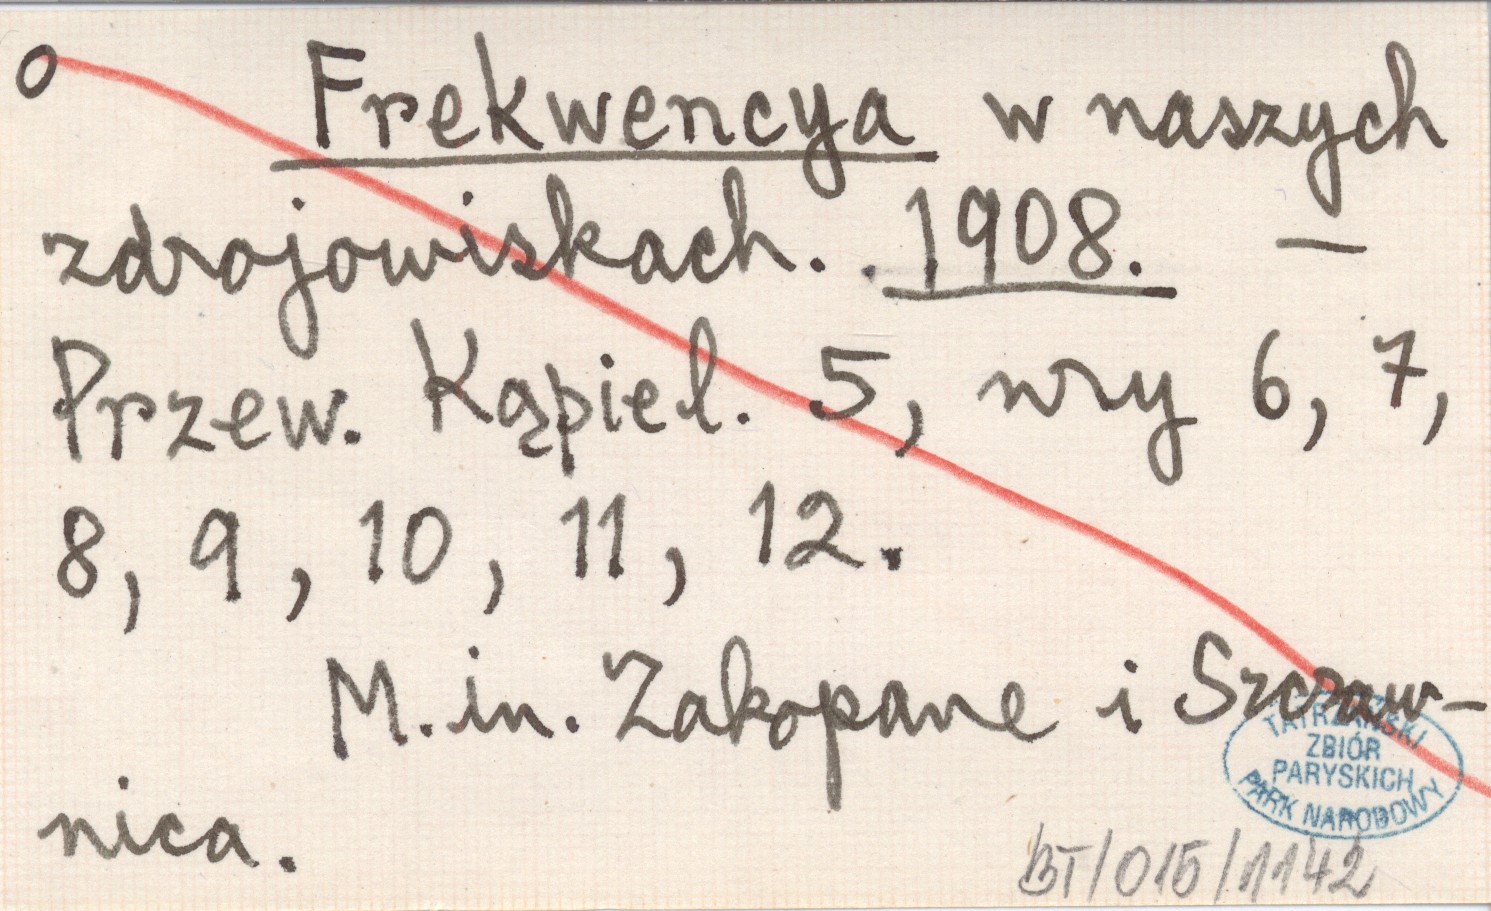 o Frekwencya w naszych
zdrojowiskach. . 1908. —
Przew. Kąpiel. 5, nry 6, 7,
8, 9, 10, 11, 12.
M. in. Zakopane i Szczaw-
nica.
TATRZAŃSKI
ZBIÓR
PARYSKICH
PARK NARODOWY
BT/015/1142